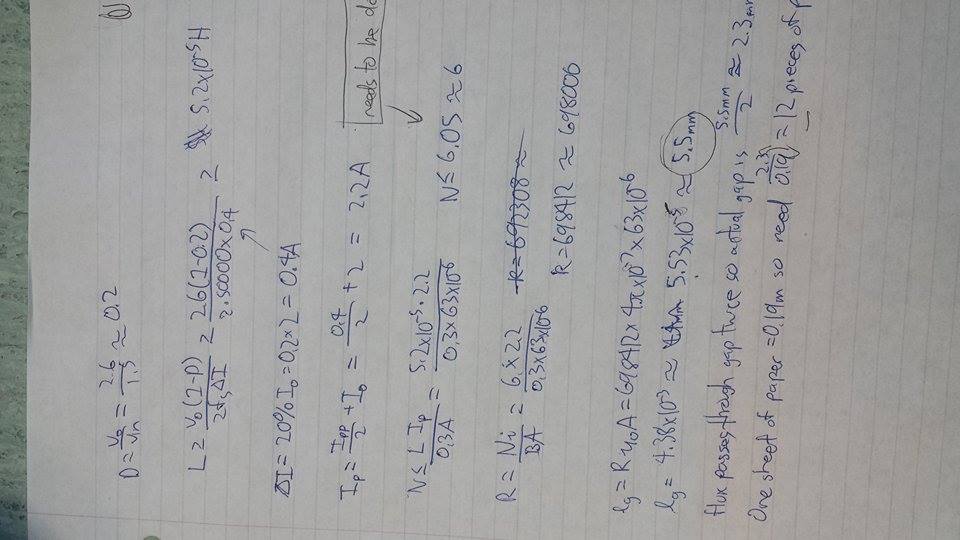 (1)
D = Vo/Vin = 2.6/1.3 ≈ 0.2
L = Vo(1-D)/2fsΔI = 2.6(1-0.2)/2.50000x0.4 = 5.2x10^-5 H
ΔI = 20% Io = 0.2x2 = 0.4A
Ip = Ipp/2 + Io = 0.4/2 + 2 = 2.2A
needs to be do
N ≤ L Ip/0.3A = 5.2x10^-5 . 2.2/0.3x63x10^-6 N ≤ 6.05 ≈ 6
R = Ni/BA = 6 x 2.2/0.3x63x10^-6 R = 692308 ≈
R = 698412 ≈ 698000
lg = R u0 A = 698412 x 4πx10^-7 x 63x10^-6
lg = 4.38x10^-3 ≈ 5.53x10^-5 ≈ 5.5mm
flux passes through gap twice so actual gap is 5.5mm/2 ≈ 2.3m
One sheet of paper = 0.19m so need 2.3/0.19 = 12 pieces of p